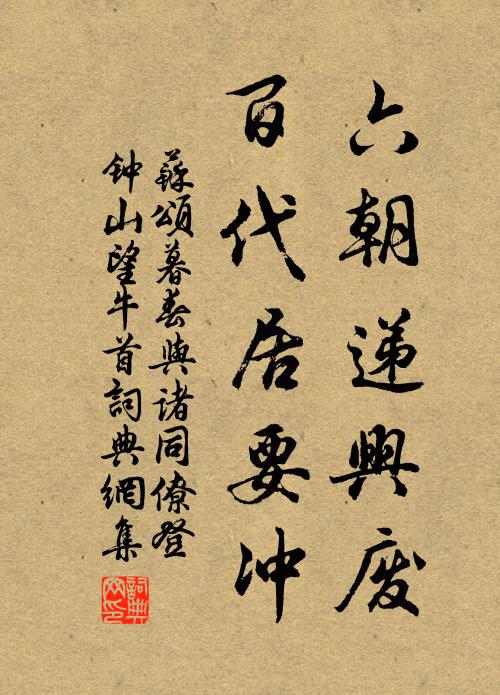 六朝递興废
百代居要冲
蘇頌暮春與诸同僚登
钟山望牛首詞典網集
詞典
网印